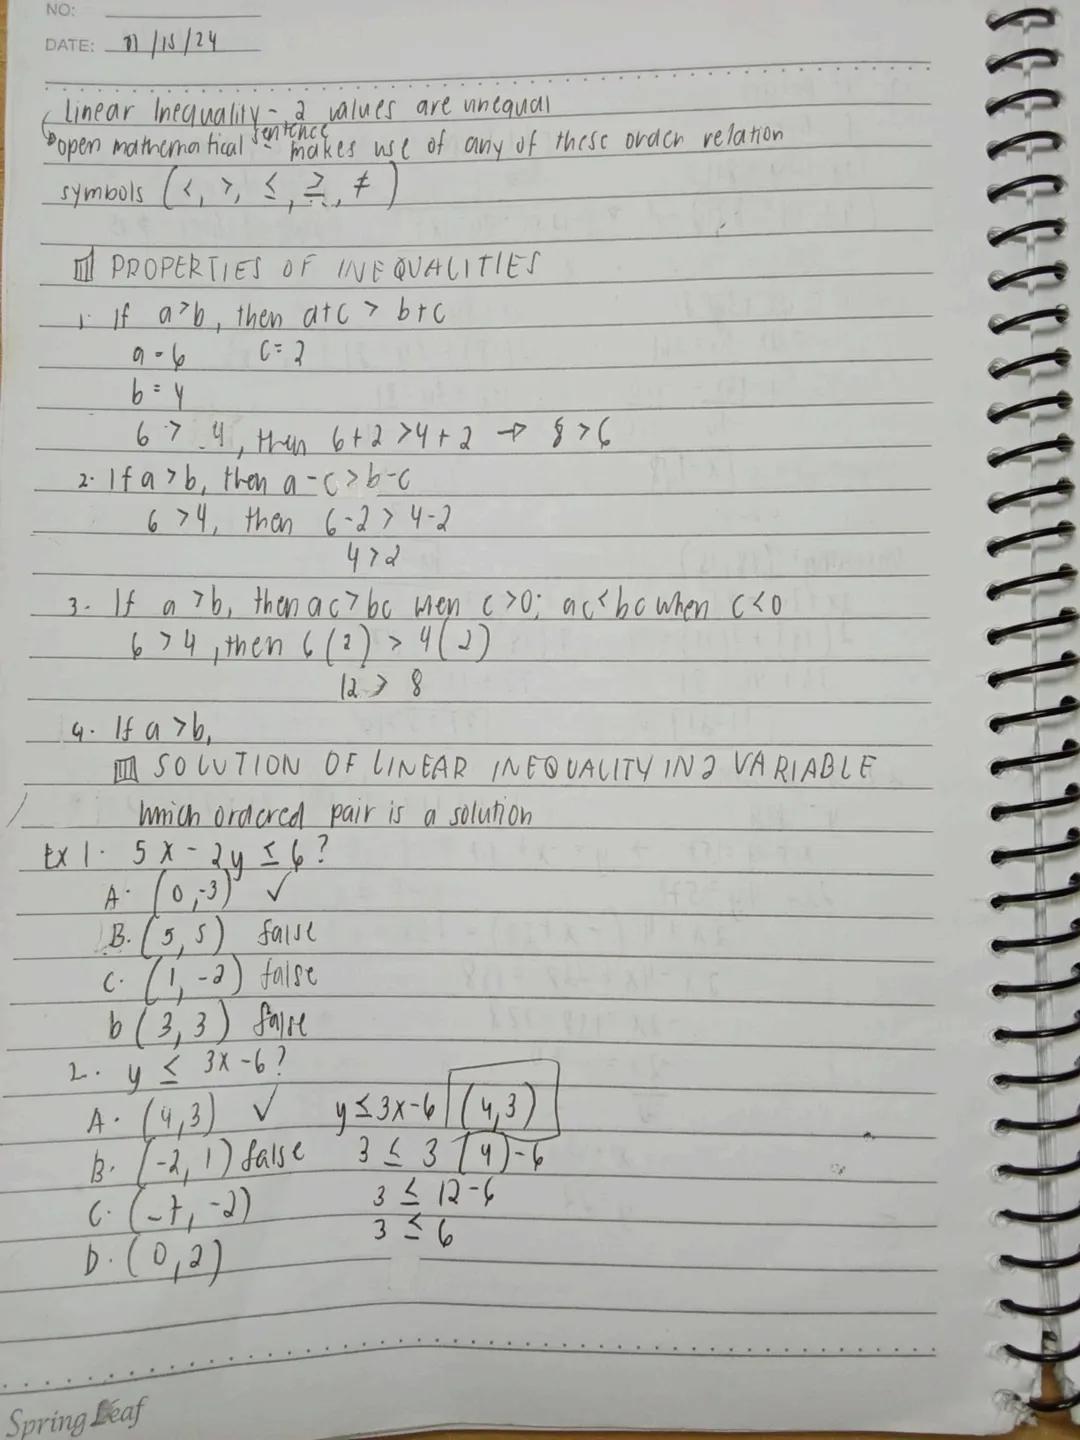 NO:
DATE: 11/15/24
Linear Inequality - 2 values are unequal
open mathematical sentence makes use of any of these order relation
symbols (<, >, ≤, ≥, ≠)
PROPERTIES OF INEQUALITIES
1. If a>b, then a+c > b+c
a = 6 c = 2
b = 4
6 > 4, then 6+2 >4+2 → 8>6
2. If a >b, then a-c >b-c
6 >4, then 6-2 > 4-2
4>2
3. If a >b, then ac>bc when c >0; ac<bc when c<0
6 >4, then 6(2) > 4(2)
12 > 8
4. If a >b,
SOLUTION OF LINEAR INEQUALITY IN 2 VARIABLE
which ordered pair is a solution
Ex 1. 5x - 2y ≤ 6?
A. (0,-3) ✓
B. (5, 5) false
C. (1, -2) false
D (3, 3) false
2. y ≤ 3x-6?
A. (4,3) ✓ y≤3x-6 (4,3)
B. (-2, 1) false 3 ≤ 3(4)-6
C. (-7, -2) 3 ≤ 12-6
3 ≤ 6
D. (0,2)
Spring Leaf